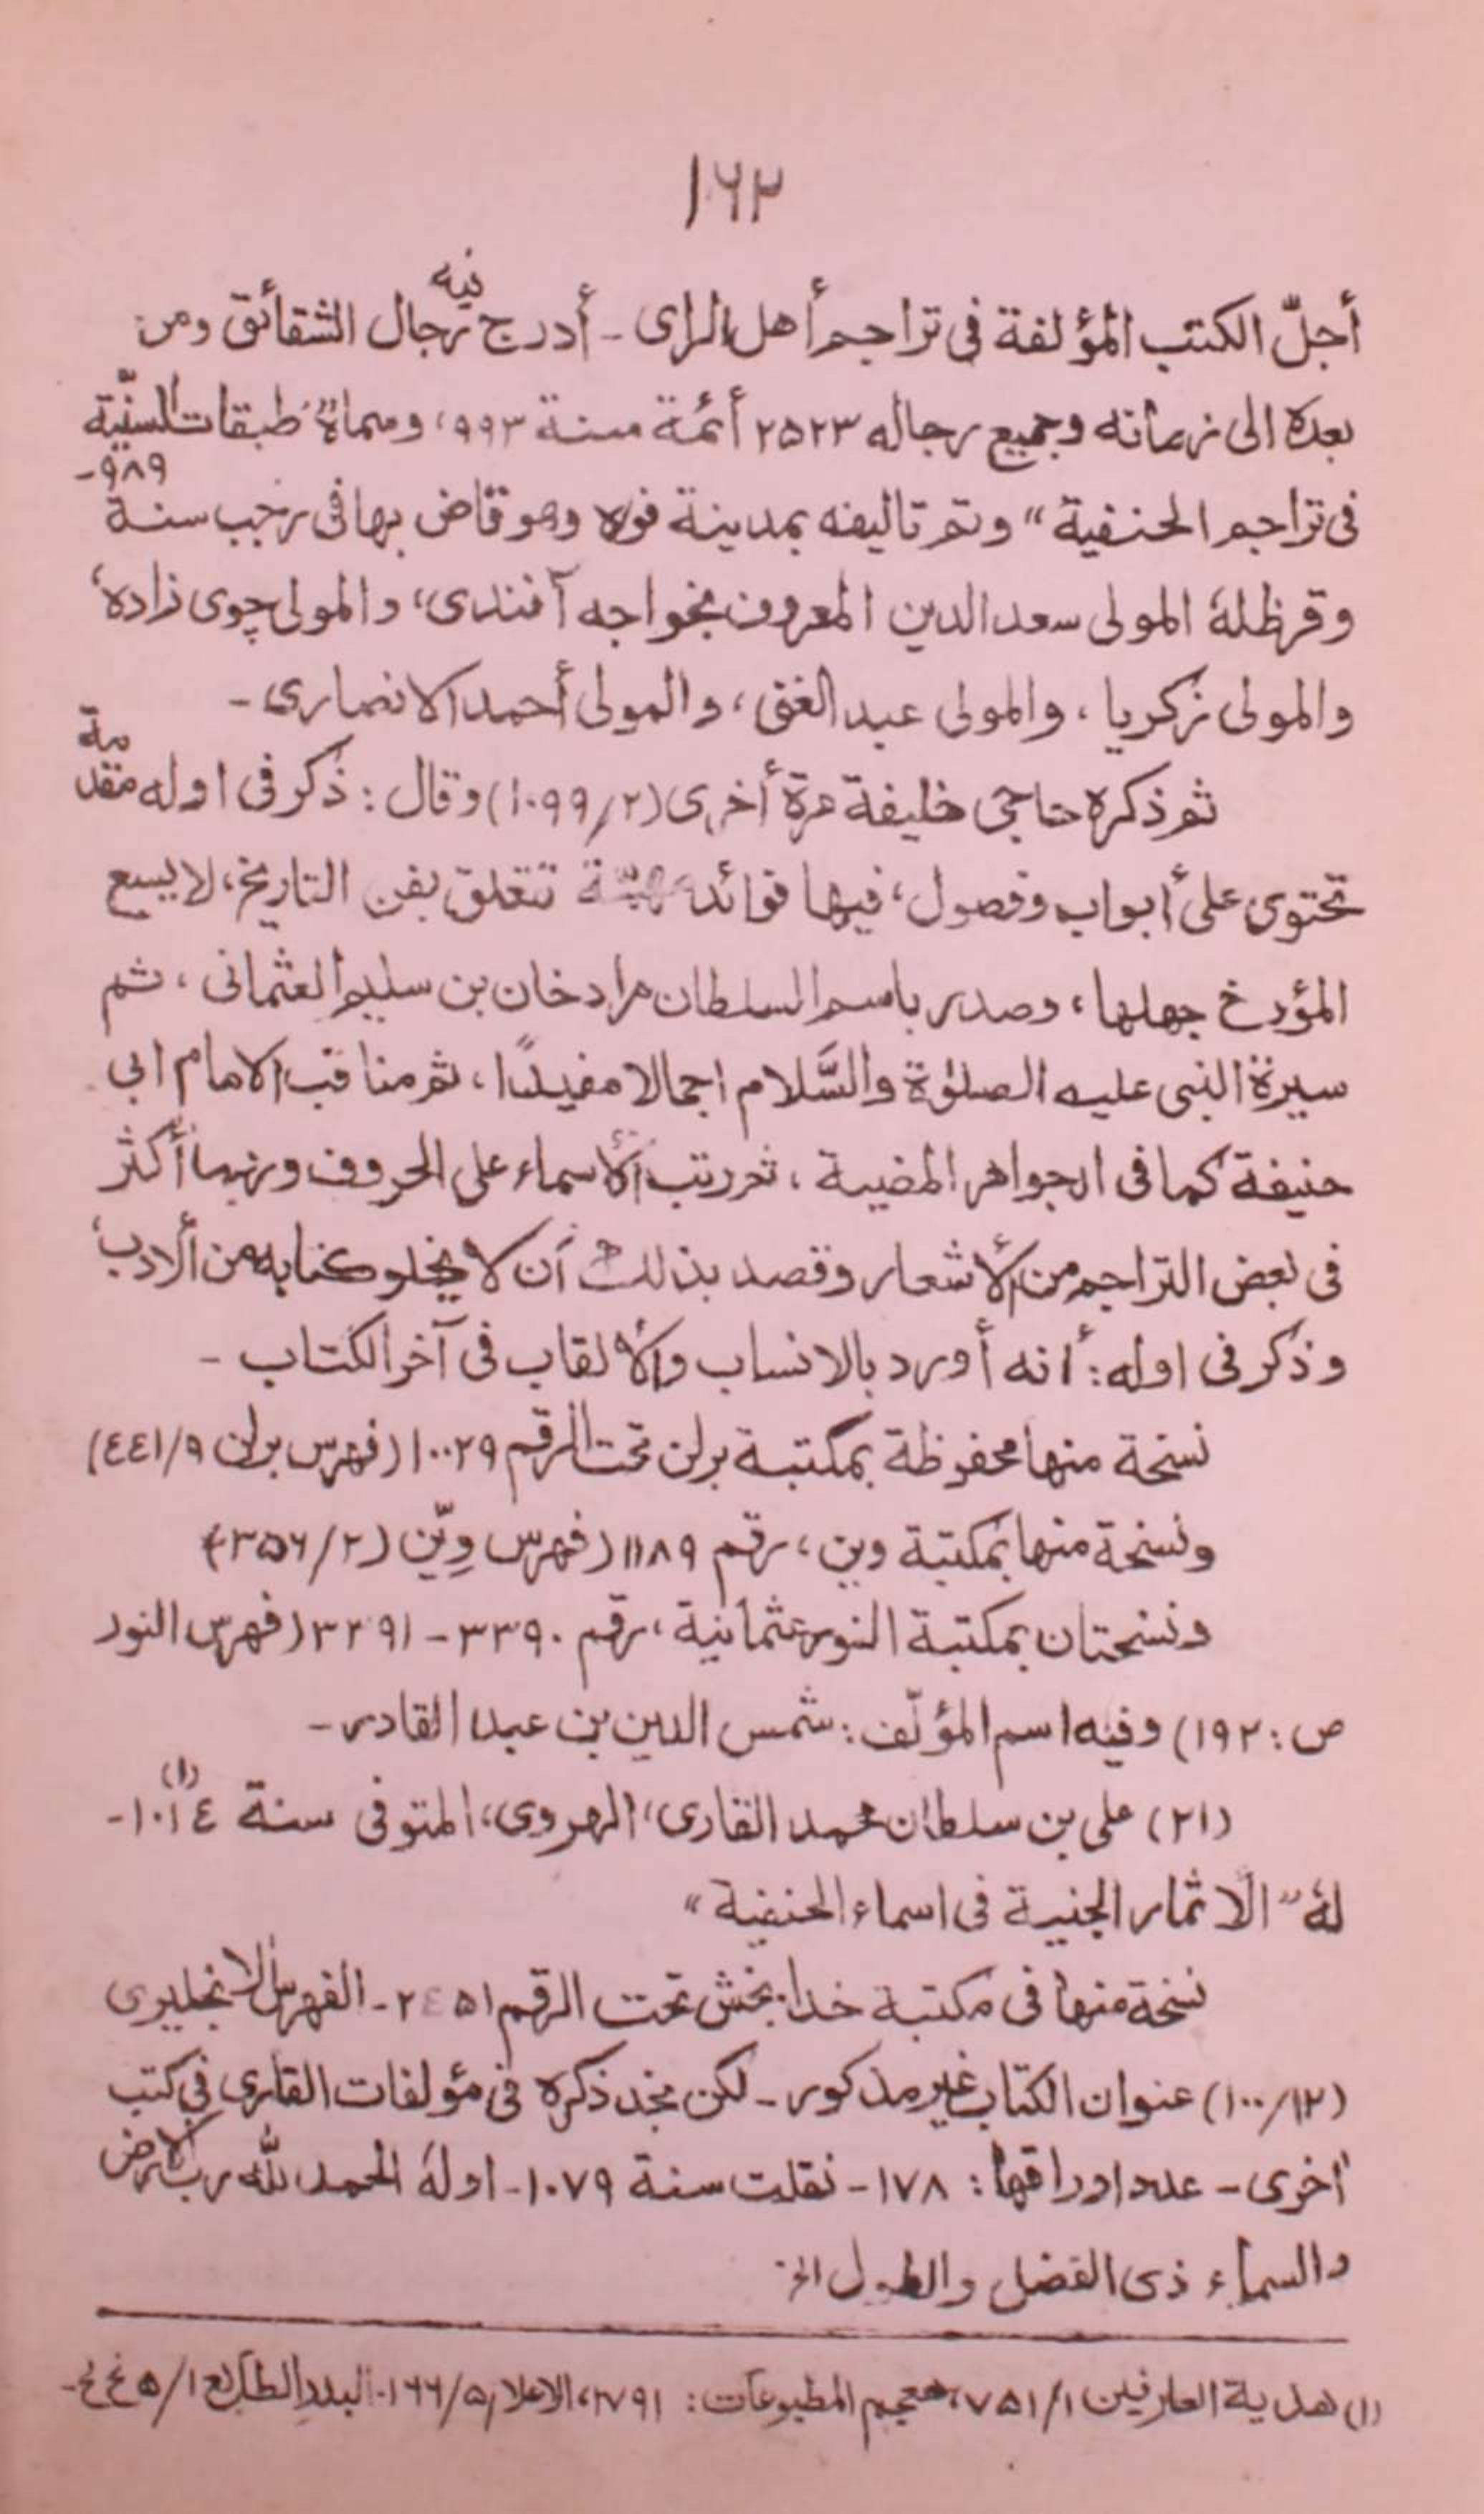 ۱۶۲
أجلّ الكتب المؤلفة فى تراجم أهل الراى ـ أدرج فيه رجال الشقائق ومن
بعده الى زمانه وجميع رجاله ۲۵۲۳ أئمة سنة ۹۹۳، وسماهٗ "طبقات السنّية
فى تراجم الحنفية" وتم تاليفه بمدينة فوه وهو قاض بها فى رجب سنة ۹۸۹ـ
وقرظلهٗ المولى سعد الدين المعروف بخواجه آفندى، والمولى چوى زاده،
والمولى زكريا، والمولى عبد الغنى، والمولى أحمد الانصارى ـ
ثم ذكره حاجى خليفة مرة أخرى (۱۰۹۹/۲) وقال: ذكر فى اوله مقدمة
تحتوى على أبواب وفصول، فيها فوائد مهمّة تتعلق بفن التاريخ، لا يسع
المؤرخ جهلها، وصدر باسم السلطان مراد خان بن سليم العثمانى، ثم
سيرة النبى عليه الصلوٰة والسَّلام اجمالا مفيدًا، ثم مناقب الامام ابى
حنيفة كما فى الجواهر المضيية، ثم رتب الأسماء على الحروف وربما أكثر
فى بعض التراجم من الأشعار وقصد بذلك أن لا يخلو كتابه من الأدب،
وذكر فى اوله: أنه أورد بالانساب والألقاب فى آخر الكتاب ـ
نسخة منها محفوظة بمكتبة برلن تحت الرقم ۱۰۰۲۹ (فهرس برلن ۹/٤٤۱)
ونسخة منها بمكتبة وين، رقم ۱۱۸۹ (فهرس وِيّن (۳۵۶/۲)
ونسختان بمكتبة النور عثمانية، رقم ۳۳۹۰ ـ ۳۳۹۱ (فهرس النور
ص: ۱۹۲) وفيه اسم المؤلّف: شمس الدين بن عبد القادر ـ
(۲۱) على بن سلطان محمد القارى، الهروى، المتوفى سنة ۱۰۱٤(۱) ـ
لهٗ "الاثمار الجنية فى اسماء الحنفية"
نسخة منها فى مكتبة خدا بخش تحت الرقم ۲٤۵۱ ـ الفهرس الانجليرى
(۱۰۰/۱۲) عنوان الكتاب غير مذكور ـ لكن نجد ذكره فى مؤلفات القارى في كتب
أخرى ـ عدد اوراقها: ۱۷۸ ـ نقلت سنة ۱۰۷۹ ـ اولهٗ الحمد لله رب الارض
والسماء ذى الفضل والطول الخ
(۱) هدية العارفين ۷۵۱/۱، معجم المطبوعات: ۱۷۹۱، الاعلام ۱۶۶/۵ـ البدر الطالع ۱/